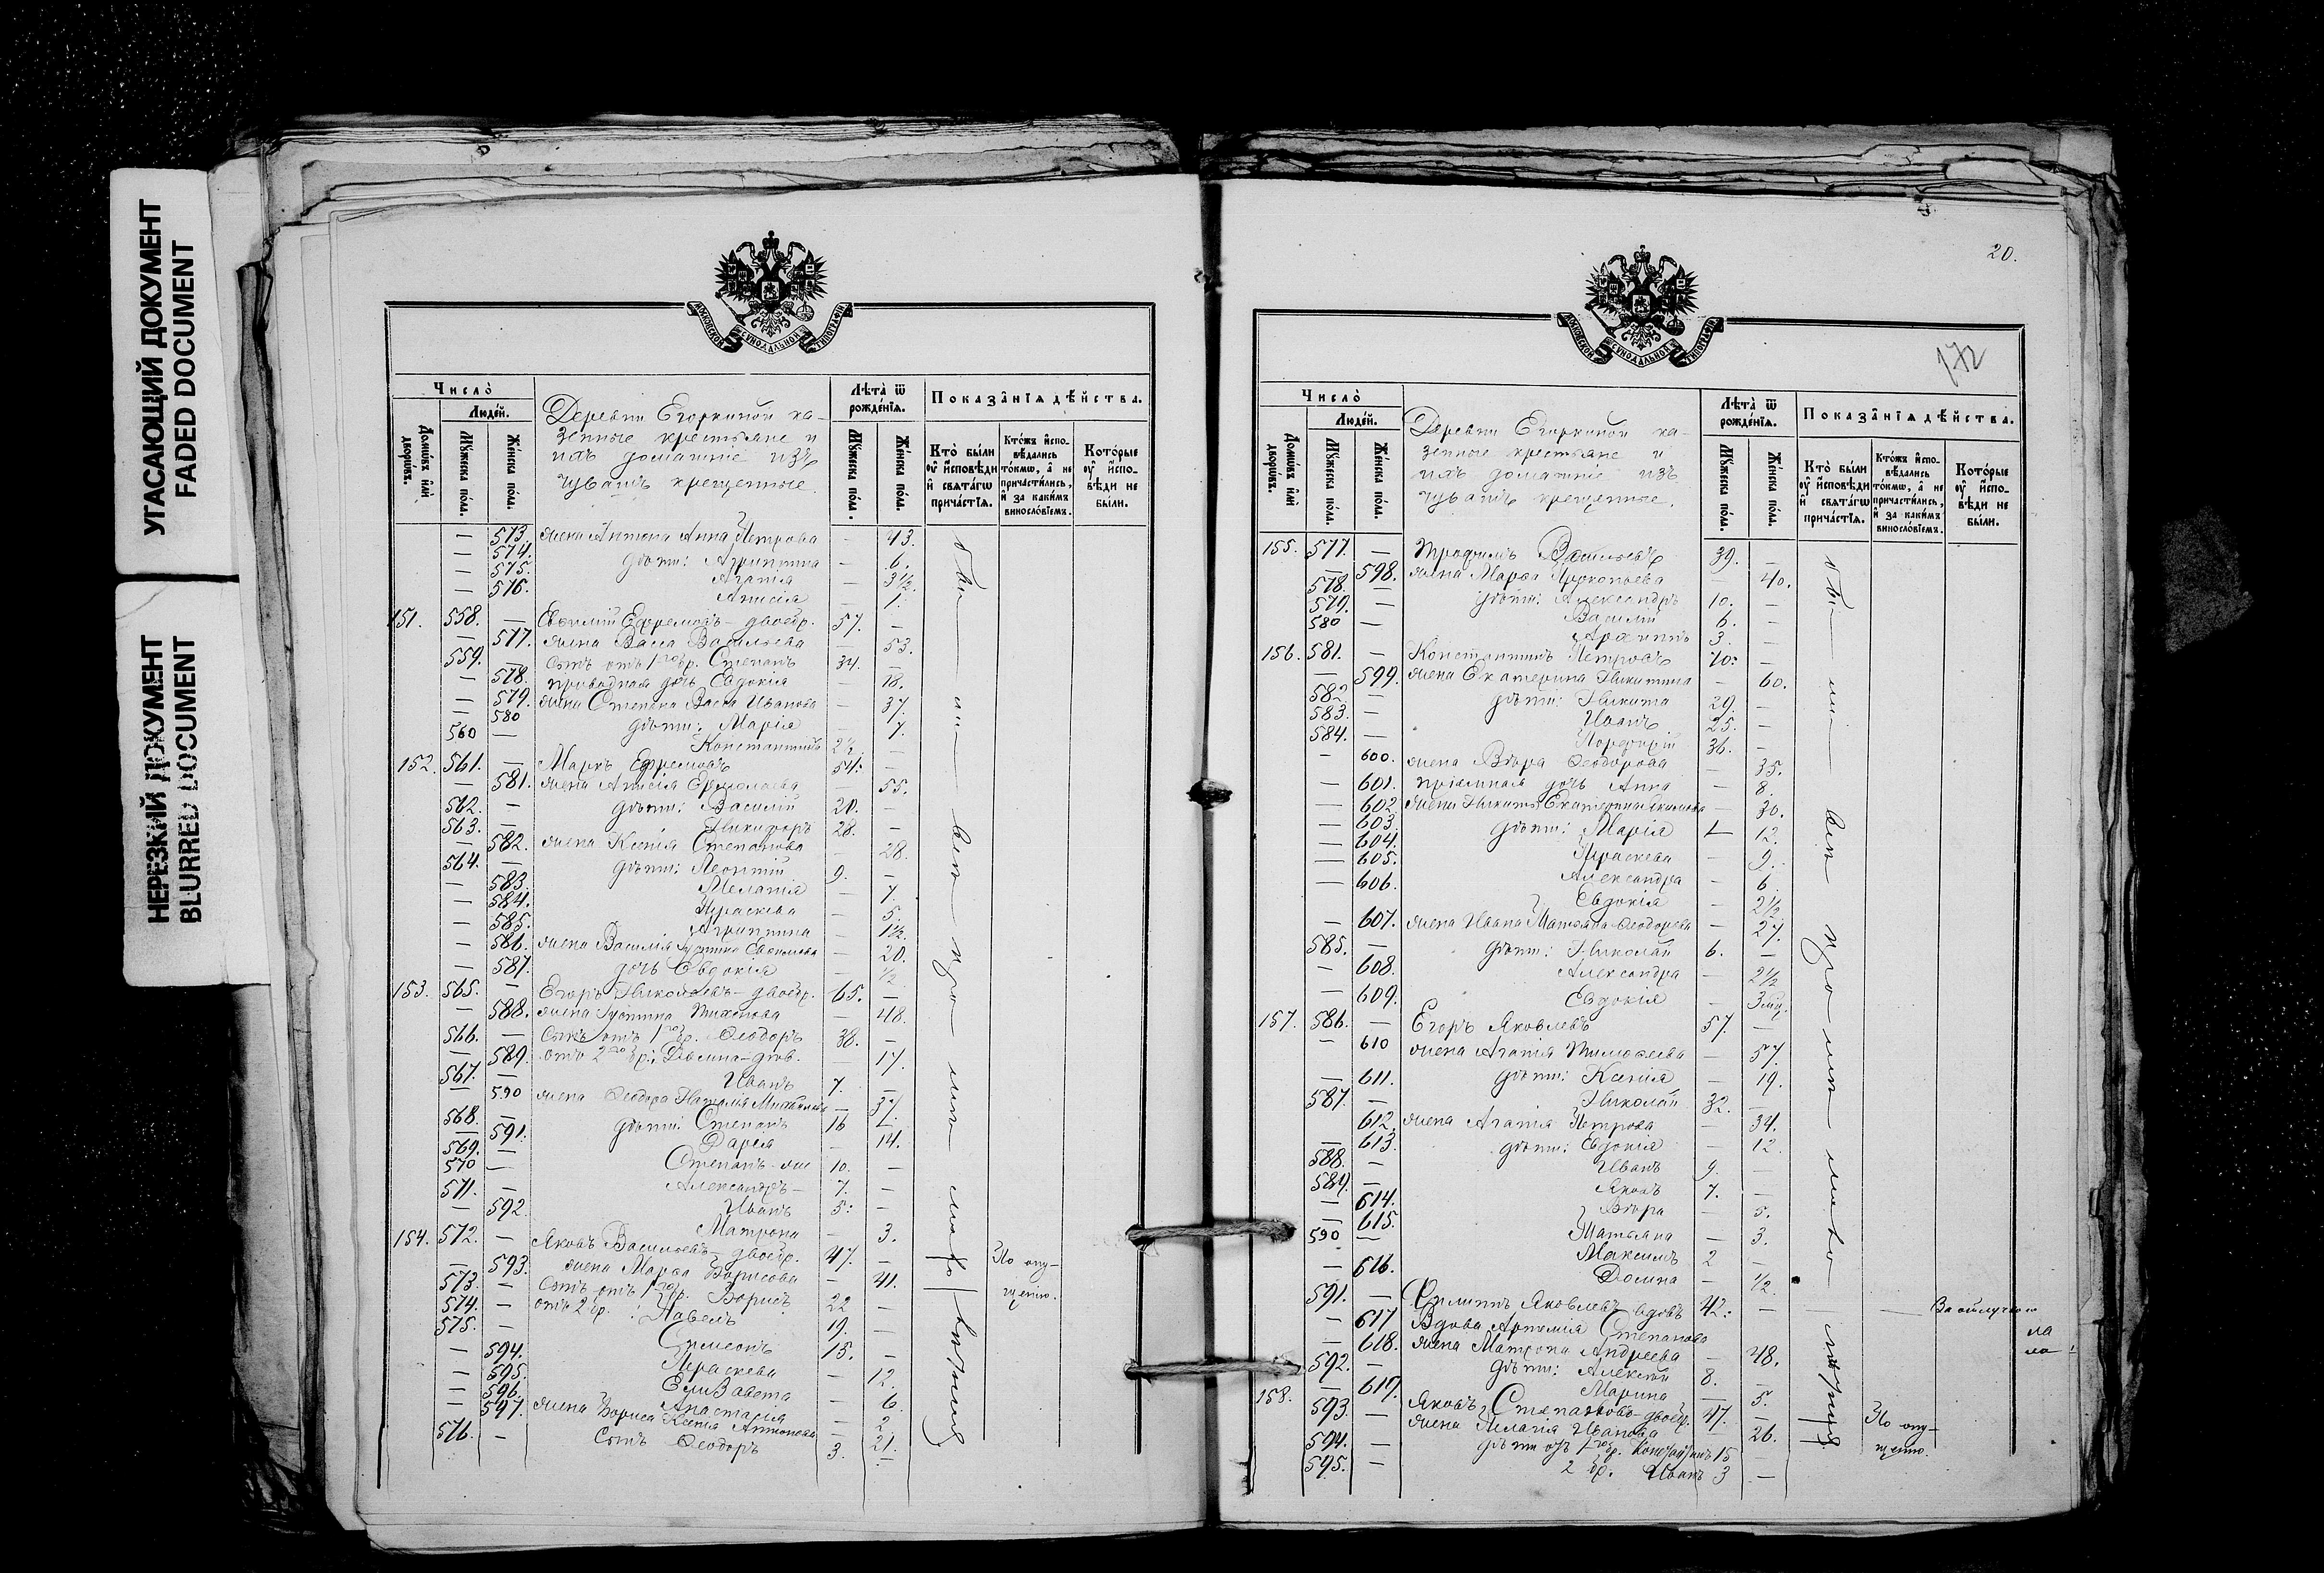 УГАСАЮЩИЙ ДОКУМЕНТ
FADED DOCUMENT
НЕРЕЗКИЙ ДОКУМЕНТ
BLURRED DOCUMENT
МОСКОВСКОЙ СУНОДАЛЬНОЙ ТИПОГРАФІИ
Число̀
Люде́й.
Домѡ́въ и҆лѝ дворѡ́въ.
Мꙋ́жеска по́ла.
Же́нска по́ла.
Деревни Егоркиной ка-
зенные крестьяне и
ихъ домашніе изъ
чувашъ крещенные.
Лѣ́та ѿ рожде́нїѧ.
Мꙋ́жеска по́ла.
Же́нска по́ла.
Показа̂нїѧ дѣ́йства.
Кто̀ бы́ли ᲂу҆ и҆сповѣ́ди и҆ свѧта́гѡ прича́стїѧ.
Кто́жъ и҆спо-вѣ́дались то́кмѡ, а҆ не причасти́лись, и҆ за каки́мъ виносло́вїемъ.
Кото́рые ᲂу҆ и҆спо-вѣ́ди не бы́ли.
— 573. жена Антона Анна Петрова — 43.
— 574. дѣти: Агриппина — 6.
— 575. Агапія — 3½.
— 576. Анисія — 1.
151. 558. — Евѳимій Ефремовъ — двоебр. 57. —
— 577. жена Васса Васильева — 53.
559. — сынъ отъ 1го бр. Степанъ 34. —
— 578. приводная дочь Евдокія 18.
— 579. жена Степана Васса Иванова — 37.
— 580 дѣти: Марія — 7.
560 — Константинъ 2½ —
152. 561. — Маркъ Ефремовъ 54. —
— 581. жена Анисія Ермолаева — 55.
562. — дѣти: Василій 20. —
563. — Никифоръ 28. —
— 582. жена Ксенія Степанова — 28.
564. — дѣти: Леонтій 9. —
— 583. Меланія — 7.
— 584. Параскева — 5.
— 585. Агриппина — 1½.
— 586. жена Василія Іустина Евѳимова — 20.
— 587. дочь Евдокія — ½
153. 565. — Егоръ Николаевъ — двоебр. 65. —
— 588. жена Іустина Тихонова — 48.
566. — сынъ отъ 1го бр. Ѳеодоръ 38. —
— 589. отъ 2го бр.: Домна — дѣв. — 17.
567. — Иванъ 7. —
— 590 жена Ѳеодора Наталія Михайлова — 37.
568. — дѣти: Степанъ 16 —
— 591. Дарья — 14.
569. — Степанъ 10. —
570 — Александръ — 7. —
571. — Иванъ 5. —
— 592 Матрона — 3.
154. 572. — Яковъ Васильевъ — двоебр. 47. —
— 593. жена Марѳа Борисова — 41.
573. — сынъ отъ 1го бр. Борисъ 22 —
574. — отъ 2 бр.: Павелъ 19. —
575. — Симеонъ 15. —
— 594. Параскева — 12.
— 595. Елизавета — 6.
— 596. Анастасія — 2
— 597. жена Бориса Ксенія Антонова — 21.
576. — сынъ Ѳеодоръ 3. —
По опу-
щенію.
20.
172
МОСКОВСКОЙ СУНОДАЛЬНОЙ ТИПОГРАФІИ
Число̀
Люде́й.
Домѡ́въ и҆лѝ дворѡ́въ.
Мꙋ́жеска по́ла.
Же́нска по́ла.
Деревни Егоркиной ка-
зенные крестьяне и
ихъ домашніе изъ
чувашъ крещенные.
Лѣ́та ѿ рожде́нїѧ.
Мꙋ́жеска по́ла.
Же́нска по́ла.
Показа̂нїѧ дѣ́йства.
Кто̀ бы́ли ᲂу҆ и҆сповѣ́ди и҆ свѧта́гѡ прича́стїѧ.
Кто́жъ и҆спо-вѣ́дались то́кмѡ, а҆ не причасти́лись, и҆ за каки́мъ виносло́вїемъ.
Кото́рые ᲂу҆ и҆спо-вѣ́ди не бы́ли.
155. 577. — Трофимъ Васильевъ 39. —
— 598. жена Марѳа Прокопьева — 40.
578. — дѣти: Александръ 10. —
579. — Василій 6. —
580 — Архиппъ 3. —
156. 581. — Константинъ Петровъ 70. —
— 599. жена Екатерина Никитина — 60.
582 — дѣти: Никита 29. —
583. — Иванъ 25. —
584. — Порфирій 36. —
— 600. жена Вѣра Ѳеодорова — 35.
— 601. пріемная дочь Анна — 8.
— 602 жена Никиты Екатерина Якимова — 30.
— 603. дѣти: Марія — 12.
— 604. Параскева — 9.
— 605. Александра — 6
— 606. Евдокія — 2½
— 607. жена Ивана Татьяна Ѳеодорова — 27.
585. — дѣти: Николай 6. —
— 608. Александра — 2½
— 609. Евдокія — 3 мѣс.
157. 586. — Егоръ Яковлевъ 57. —
— 610 жена Агапія Тимоѳеева — 57.
— 611. дѣти: Ксенія — 19.
587. — Николай 32. —
— 612. жена Агапія Петрова — 34.
— 613. дѣти: Евдокія — 12.
588. — Иванъ 9. —
589. — Яковъ 7. —
— 614. Вѣра — 5.
— 615. Татьяна — 3.
590 — Максимъ 2 —
— 616. Домна — ½
591. — Филиппъ Яковлевъ вдовъ 42. — За отлучкою
— 617 Вдова Артемія Степанова
— 618. жена Матрона Андреева — 48.
592. — дѣти: Алексѣй 8. —
— 619. Марина — 5.
158. 593. — Яковъ Степановъ — двоебр. 47. —
жена Пелагія Иванова — 26.
594. — дѣти отъ 1го бр. Константинъ 15
595. — 2 бр. Иванъ 3 —
По опу-
щенію.